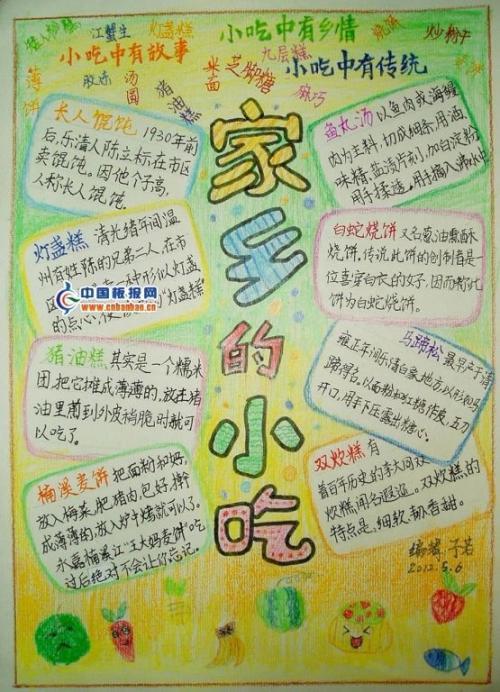 江蟹生
灯盏糕
小吃中有乡情
炒粉干
小吃中有故事
九层糕
小吃中有传统
薄饼
胶冻
汤圆
猪油糕
米面
芝脚糖
家乡的小吃
长人馄饨 1930年前
后,乐清人陈立标,在市区
卖馄饨。因他个子高,
人称长人馄饨。
灯盏糕 清光绪年间温
州百姓陈的兄弟二人,在市
区
一种形似灯盏
“灯盏糕”
的点心,
中国板报网
www.cnbanbao.cn
猪油糕 其实是一个糯米
团,把它摊成薄薄的,放进猪
油里煎到外皮稍脆时就可
以吃了。
楠溪麦饼 把面粉和好,
放入梅菜、肥猪肉,包好,擀
成薄薄的,放入炉中烤就可以了。
永嘉楠溪江“王大妈麦饼”吃
过后绝对不会让你忘记。
鱼丸汤 以鱼肉或海鳗
肉为主料,切成细条,用酒、
味精、盐渍片刻,加白淀粉
用手揉透。用手摘入沸水中
白蛇烧饼 又名葱油重酥
烧饼,传说此饼的创制者是一
位喜穿白衣的好,因而称此
饼为白蛇烧饼。
马蹄松 最早产于清
雍正年间乐清白象地方以形如马
蹄得名。以面粉和红糖作皮,五刀
开口,用手下压露出糖心。
双炊糕 有
着百年历史的李大同双
炊糕,闻名遐迩。双炊糕的
特点是,细软、韧香甜。
编辑:子若
2012.5.6